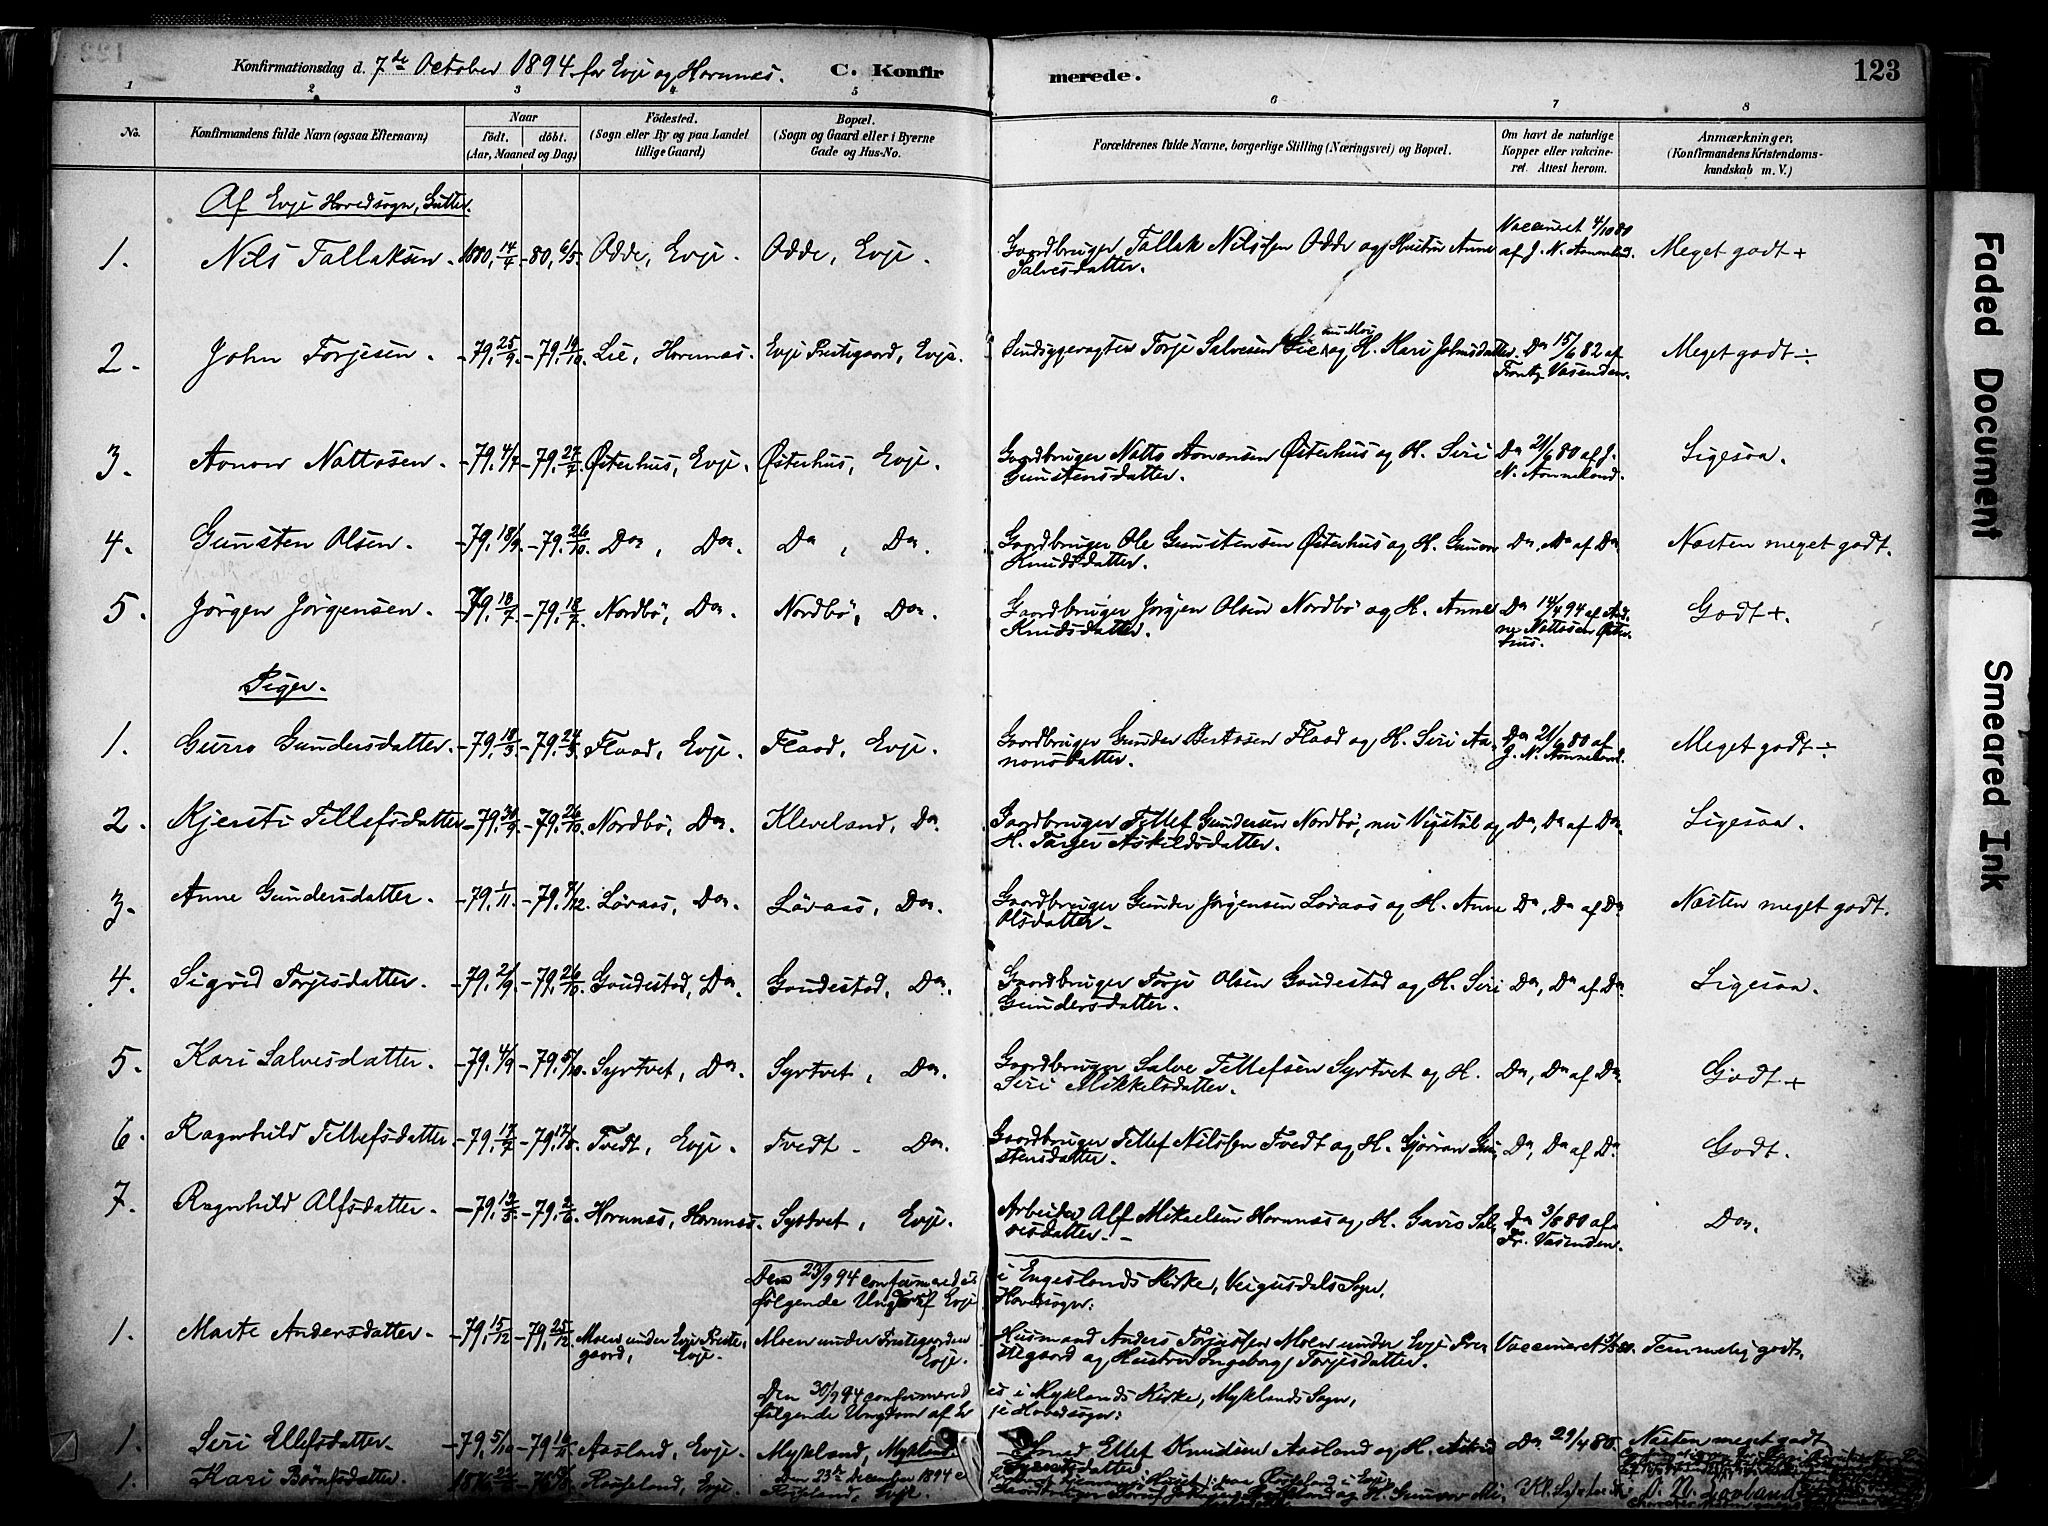 Konfirmationsdag d. 7de October 1894 for Evje og Hornnes. C. Konfirmerede. 123
1 2 3 4 5 6 7 8
No. Konfirmandens fulde Navn (ogsaa Efternavn) Naar født. døbt. (Aar, Maaned og Dag) Fødested. (Sogn eller By og paa Landet tillige Gaard) Bopæl. (Sogn og Gaard eller i Byerne Gade og Hus-No. Forældrenes fulde Navne, borgerlige Stilling (Næringsvei) og Bopæl. Om havt de naturlige Kopper eller vakcineret. Attest herom. Anmærkninger. (Konfirmandens Kristendomskundskab m. V.)
Af Evje Hovedsogn, Gutter.
1. Nils Tallaksen. 1880, 14/4 -80, 6/5. Odde, Evje. Odde, Evje. Gaardbruger Tallak Nilssen Odde og Hustru Anne Salvesdatter. Vaccineret 4/10 80 af J. N. Aanneland. Meget godt +
2. John Torjesen. -79, 25/9. -79, 19/10. Lie, Hornnæs. Evje Præstegaard, Evje. Torje Salvesen Lie, nu Moi og H. Kari Johnsdatter. Do 15/6 82 af Frantz Vasenden. Meget godt ÷
3. Aanon Nattosen. -79, 4/7 -79, 27/7. Østerhus, Evje. Østerhus, Evje. Gaardbruger Natto Aanonsen Østerhus og H. Siri Gunstensdatter. Do 21/6 80 af J. N. Aanneland. Ligesaa.
4. Gunsten Olsen. -79, 18/9. -79, 26/10. Do, Do. Do, Do. Gaardbruger Ole Gunstensen Østerhus og H. Gunvor Knudsdatter. Do, Do af Do Næsten meget godt.
5. Jørgen Jørgensen. -79, 18/7 -79, 18/7. Nordbø, Do. Nordbø, Do. Gaardbruger Jørgen Olsen Nordbø og H. Anne Knudsdatter. Do 14/4 94 af Nattosen Østerhus. Godt +.
Piger.
1. Gurro Gundersdatter. -79, 18/3 -79, 24/3. Flaad, Evje. Flaad, Evje. Gaardbruger Gunder Bertosen Flaad og H. Siri Aanonsdatter. Do 21/6 80 af J. N. Aanneland. Meget godt ÷
2. Kjersti Tellefsdatter -79, 30/9 -79, 26/10. Nordbø, Do. Kleveland, Do. Gaardbruger Tellef Gundersen Nordbø, nu Vigstøl og H. Targer Askildsdatter. Do, Do af Do. Ligesaa.
3. Anne Gundersdatter. -79, 1/11. -79, 7/12. Løvaas, Do. Løvaas, Do. Gaardbruger Gunder Jørgensen Løvaas og H. Anne Olsdatter. Do, Do af Do Næsten meget godt.
4. Sigrid Torjesdatter. -79, 2/9 -79, 26/10. Gaudestad, Do. Gaudestad, Do. Gaardbruger Torje Olsen Gaudestad og H. Siri Gundersdatter. Do, Do af Do Ligesaa.
5. Kari Salvesdatter. -79, 4/9 -79, 5/10. Syrtvet, Do. Syrtvet, Do. Gaardbruger Salve Tellefsen Syrtvet og H. Siri Mikkelsdatter. Do, Do af Do. Godt +
6. Ragnhild Tellefsdatter -79, 17/7 -79, 17/8. Tvedt, Evje. Tvedt. Do. Gaardbruger Tellef Nilssen Tvedt og H. Gjøran Gunstensdatter. Do, Do af Do Godt.
7. Ragnhild Alfsdatter. -79, 19/5 -79, 2/6. Hornnæs, Hornnæs. Syrtvet, Evje. Arbeider Alf Mikaelsen Hornnæs og H. Guro Salvesdatter. Do 3/8 80 af Fr. Vasenden. Do.
Den 23/9 94 confirmeredes i Engeslands Kirke, Veigusdals Sogn,
følgende Ungdom af Evje Hovedsogn:
1. Marte Andersdatter. -79, 15/12 -79, 25/12. Moen under Evje Prestegaard, Evje. Moen under Prestegarden Evje. Husmand Anders Torjussen Moen under Evje Prestegaard og Hustru Ingeborg Torjesdatter. Vaccineret Temmelig godt.
Den 30/9 94 confirmeredes i Myklands Kirke, Myklands Sogn,
følgende Ungdom af Evje Hovedsogn:
1. Siri Ellefsdatter. -79, 5/10 -79 16/11. Aasland, Evje. Mykland, Mykland. Smed Ellef Knudsen Aasland og H. Do 29/4 80. Næsten meget godt
1. Kari Evje. Den 23de December 1894 Evje. og H. Gunvor
Faded Document
Smeared Ink